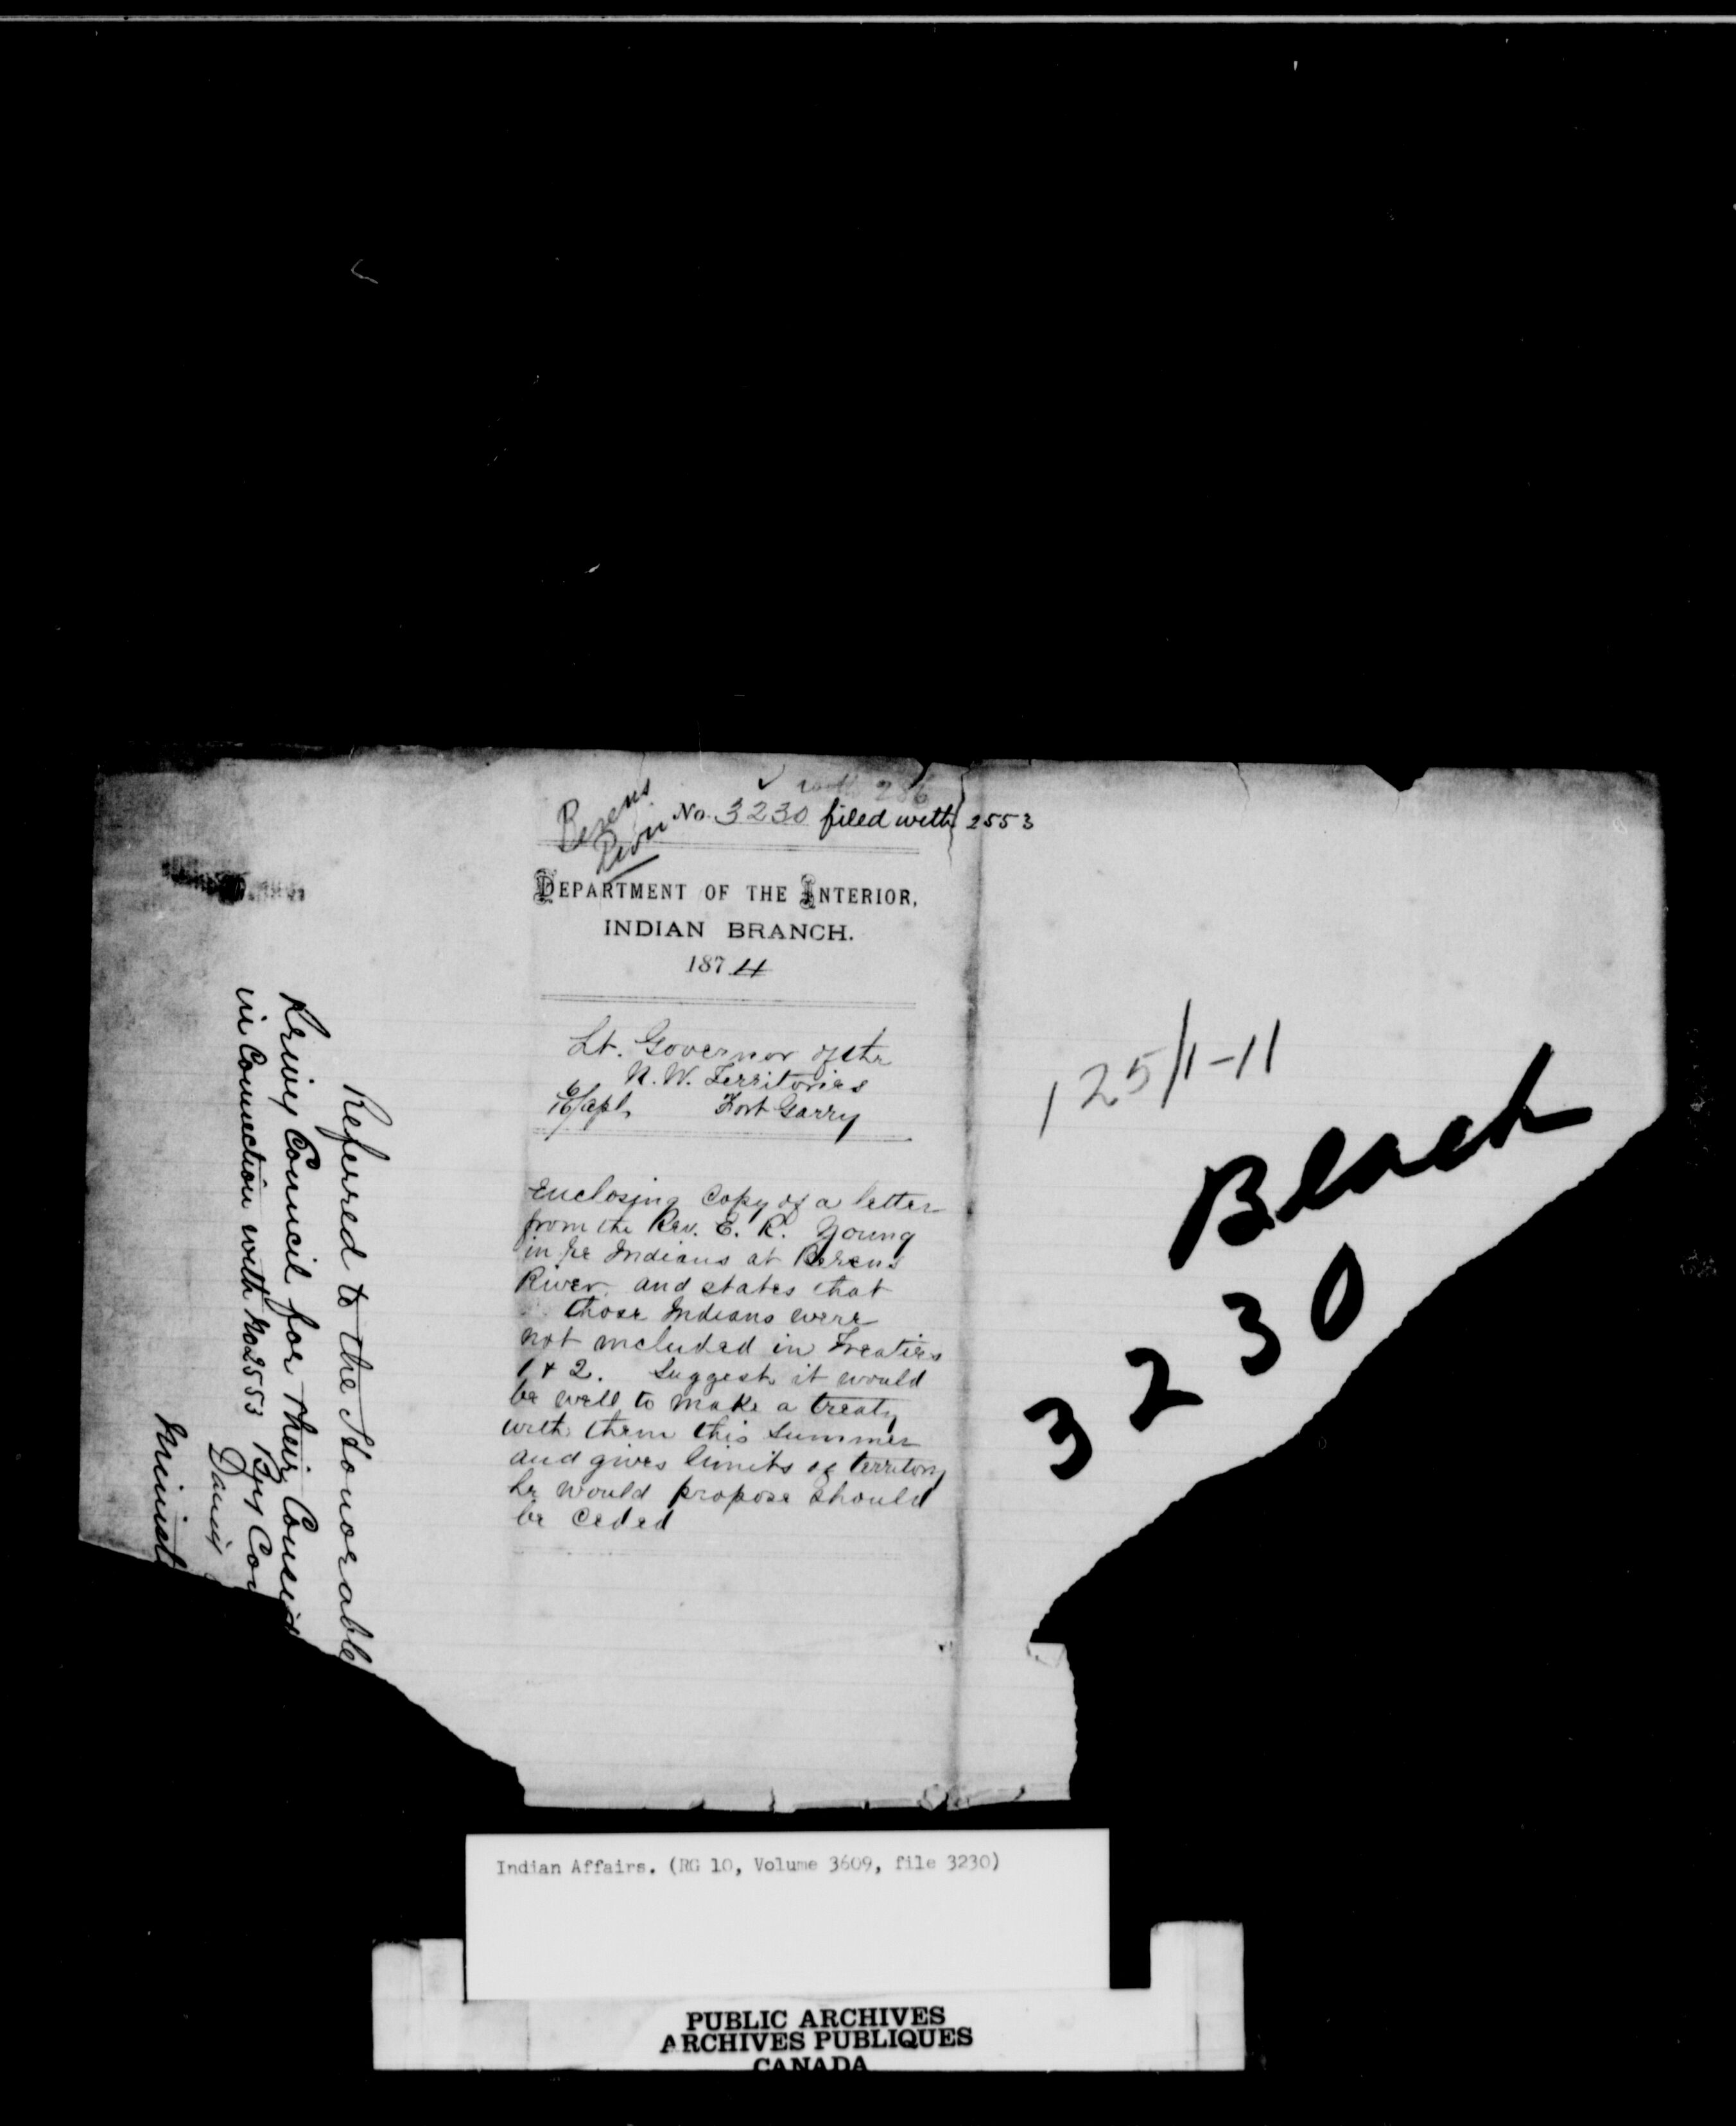 with 286
Berens
River
No. 3230 filed with 2553
DEPARTMENT OF THE INTERIOR,
INDIAN BRANCH.
1874
Lt. Governor of the
N. W. Territories
16/Apl. Fort Garry
Enclosing Copy of a letter
from the Rev. E. R. Young
in re Indians at Berens
River and states that
those Indians were
not included in Treaties
1 & 2. Suggest it would
be well to make a treaty
with them this Summer
and gives limits of territory
he would propose should
be Ceded
Referred to the Honorable
Privy Council for their Consid
in Connection with No 2553
Minist
125/1-11
Black
3230
Indian Affairs. (RG 10, Volume 3609, file 3230)
PUBLIC ARCHIVES
ARCHIVES PUBLIQUES
CANADA